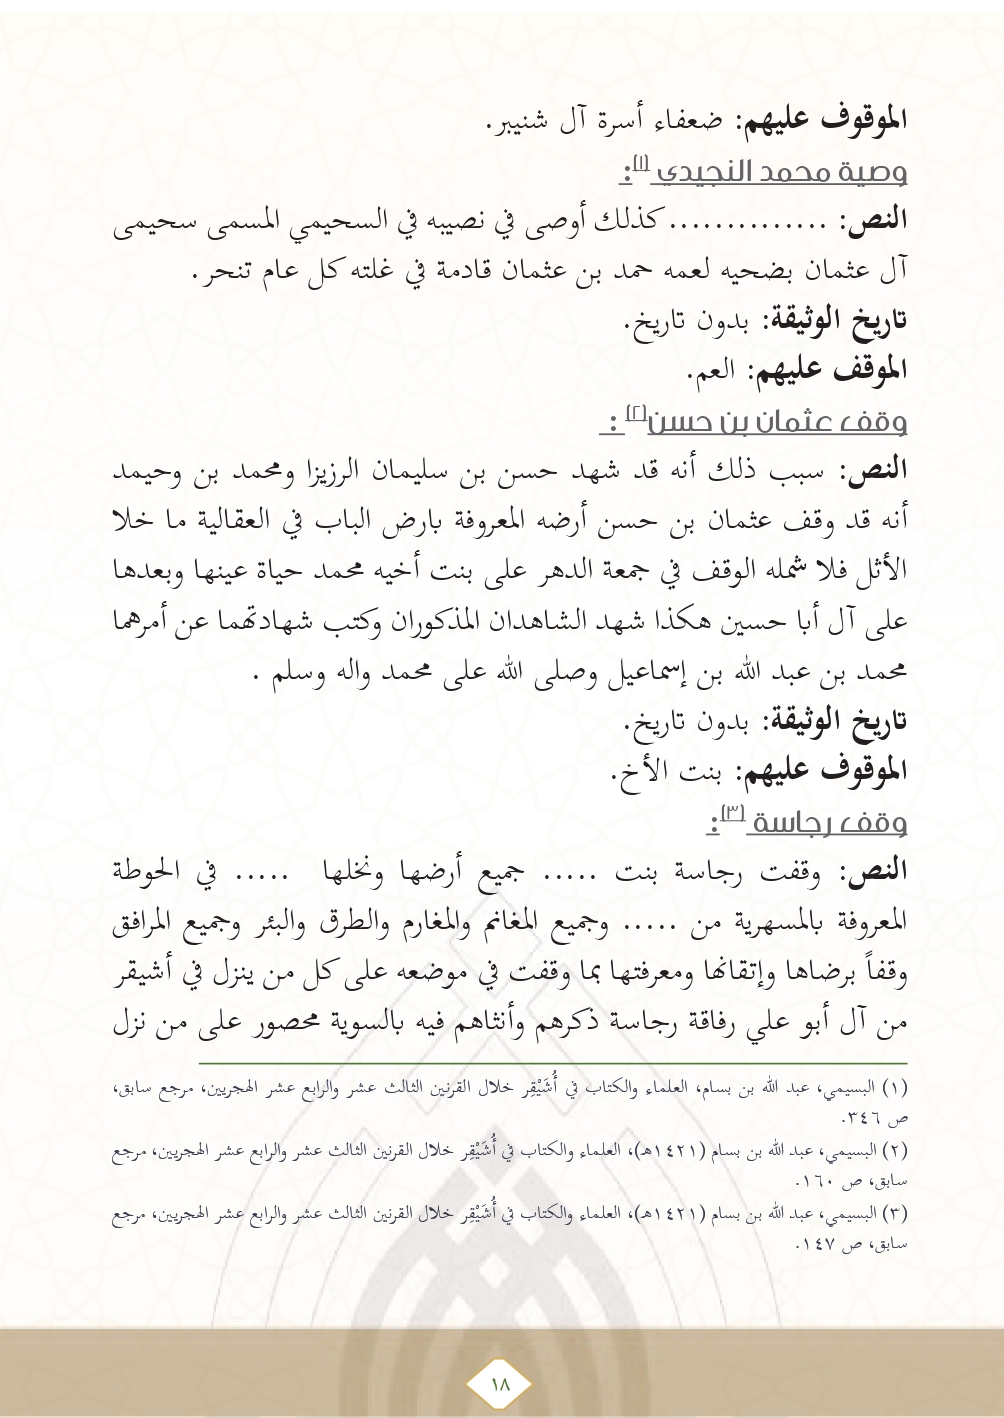 الموقوف عليهم: ضعفاء أسرة آل شنيبر.
وصية محمد النجيدي (١):
النص: .............. كذلك أوصى في نصيبه في السحيمي المسمى سحيمى
آل عثمان بضحيه لعمه حمد بن عثمان قادمة في غلته كل عام تنحر.
تاريخ الوثيقة: بدون تاريخ.
الموقف عليهم: العم.
وقف عثمان بن حسن(٢) :
النص: سبب ذلك أنه قد شهد حسن بن سليمان الرزيزا ومحمد بن وحيمد
أنه قد وقف عثمان بن حسن أرضه المعروفة بارض الباب في العقالية ما خلا
الأثل فلا شمله الوقف في جمعة الدهر على بنت أخيه محمد حياة عينها وبعدها
على آل أبا حسين هكذا شهد الشاهدان المذكوران وكتب شهادتهما عن أمرهما
محمد بن عبد الله بن إسماعيل وصلى الله على محمد واله وسلم .
تاريخ الوثيقة: بدون تاريخ.
الموقوف عليهم: بنت الأخ.
وقف رجاسة (٣):
النص: وقفت رجاسة بنت ..... جميع أرضها ونخلها ..... في الحوطة
المعروفة بالمسهرية من ..... وجميع المغانم والمغارم والطرق والبئر وجميع المرافق
وقفاً برضاها وإتقانها ومعرفتها بما وقفت في موضعه على كل من ينزل في أشيقر
من آل أبو علي رفاقة رجاسة ذكرهم وأنثاهم فيه بالسوية محصور على من نزل
(١) البسيمي، عبد الله بن بسام، العلماء والكتاب في أُشَيْقِر خلال القرنين الثالث عشر والرابع عشر الهجريين، مرجع سابق،
ص ٣٤٦.
(٢) البسيمي، عبد الله بن بسام (١٤٢١هـ)، العلماء والكتاب في أُشَيْقِر خلال القرنين الثالث عشر والرابع عشر الهجريين، مرجع
سابق، ص ١٦٠.
(٣) البسيمي، عبد الله بن بسام (١٤٢١هـ)، العلماء والكتاب في أُشَيْقِر خلال القرنين الثالث عشر والرابع عشر الهجريين، مرجع
سابق، ص ١٤٧.
١٨